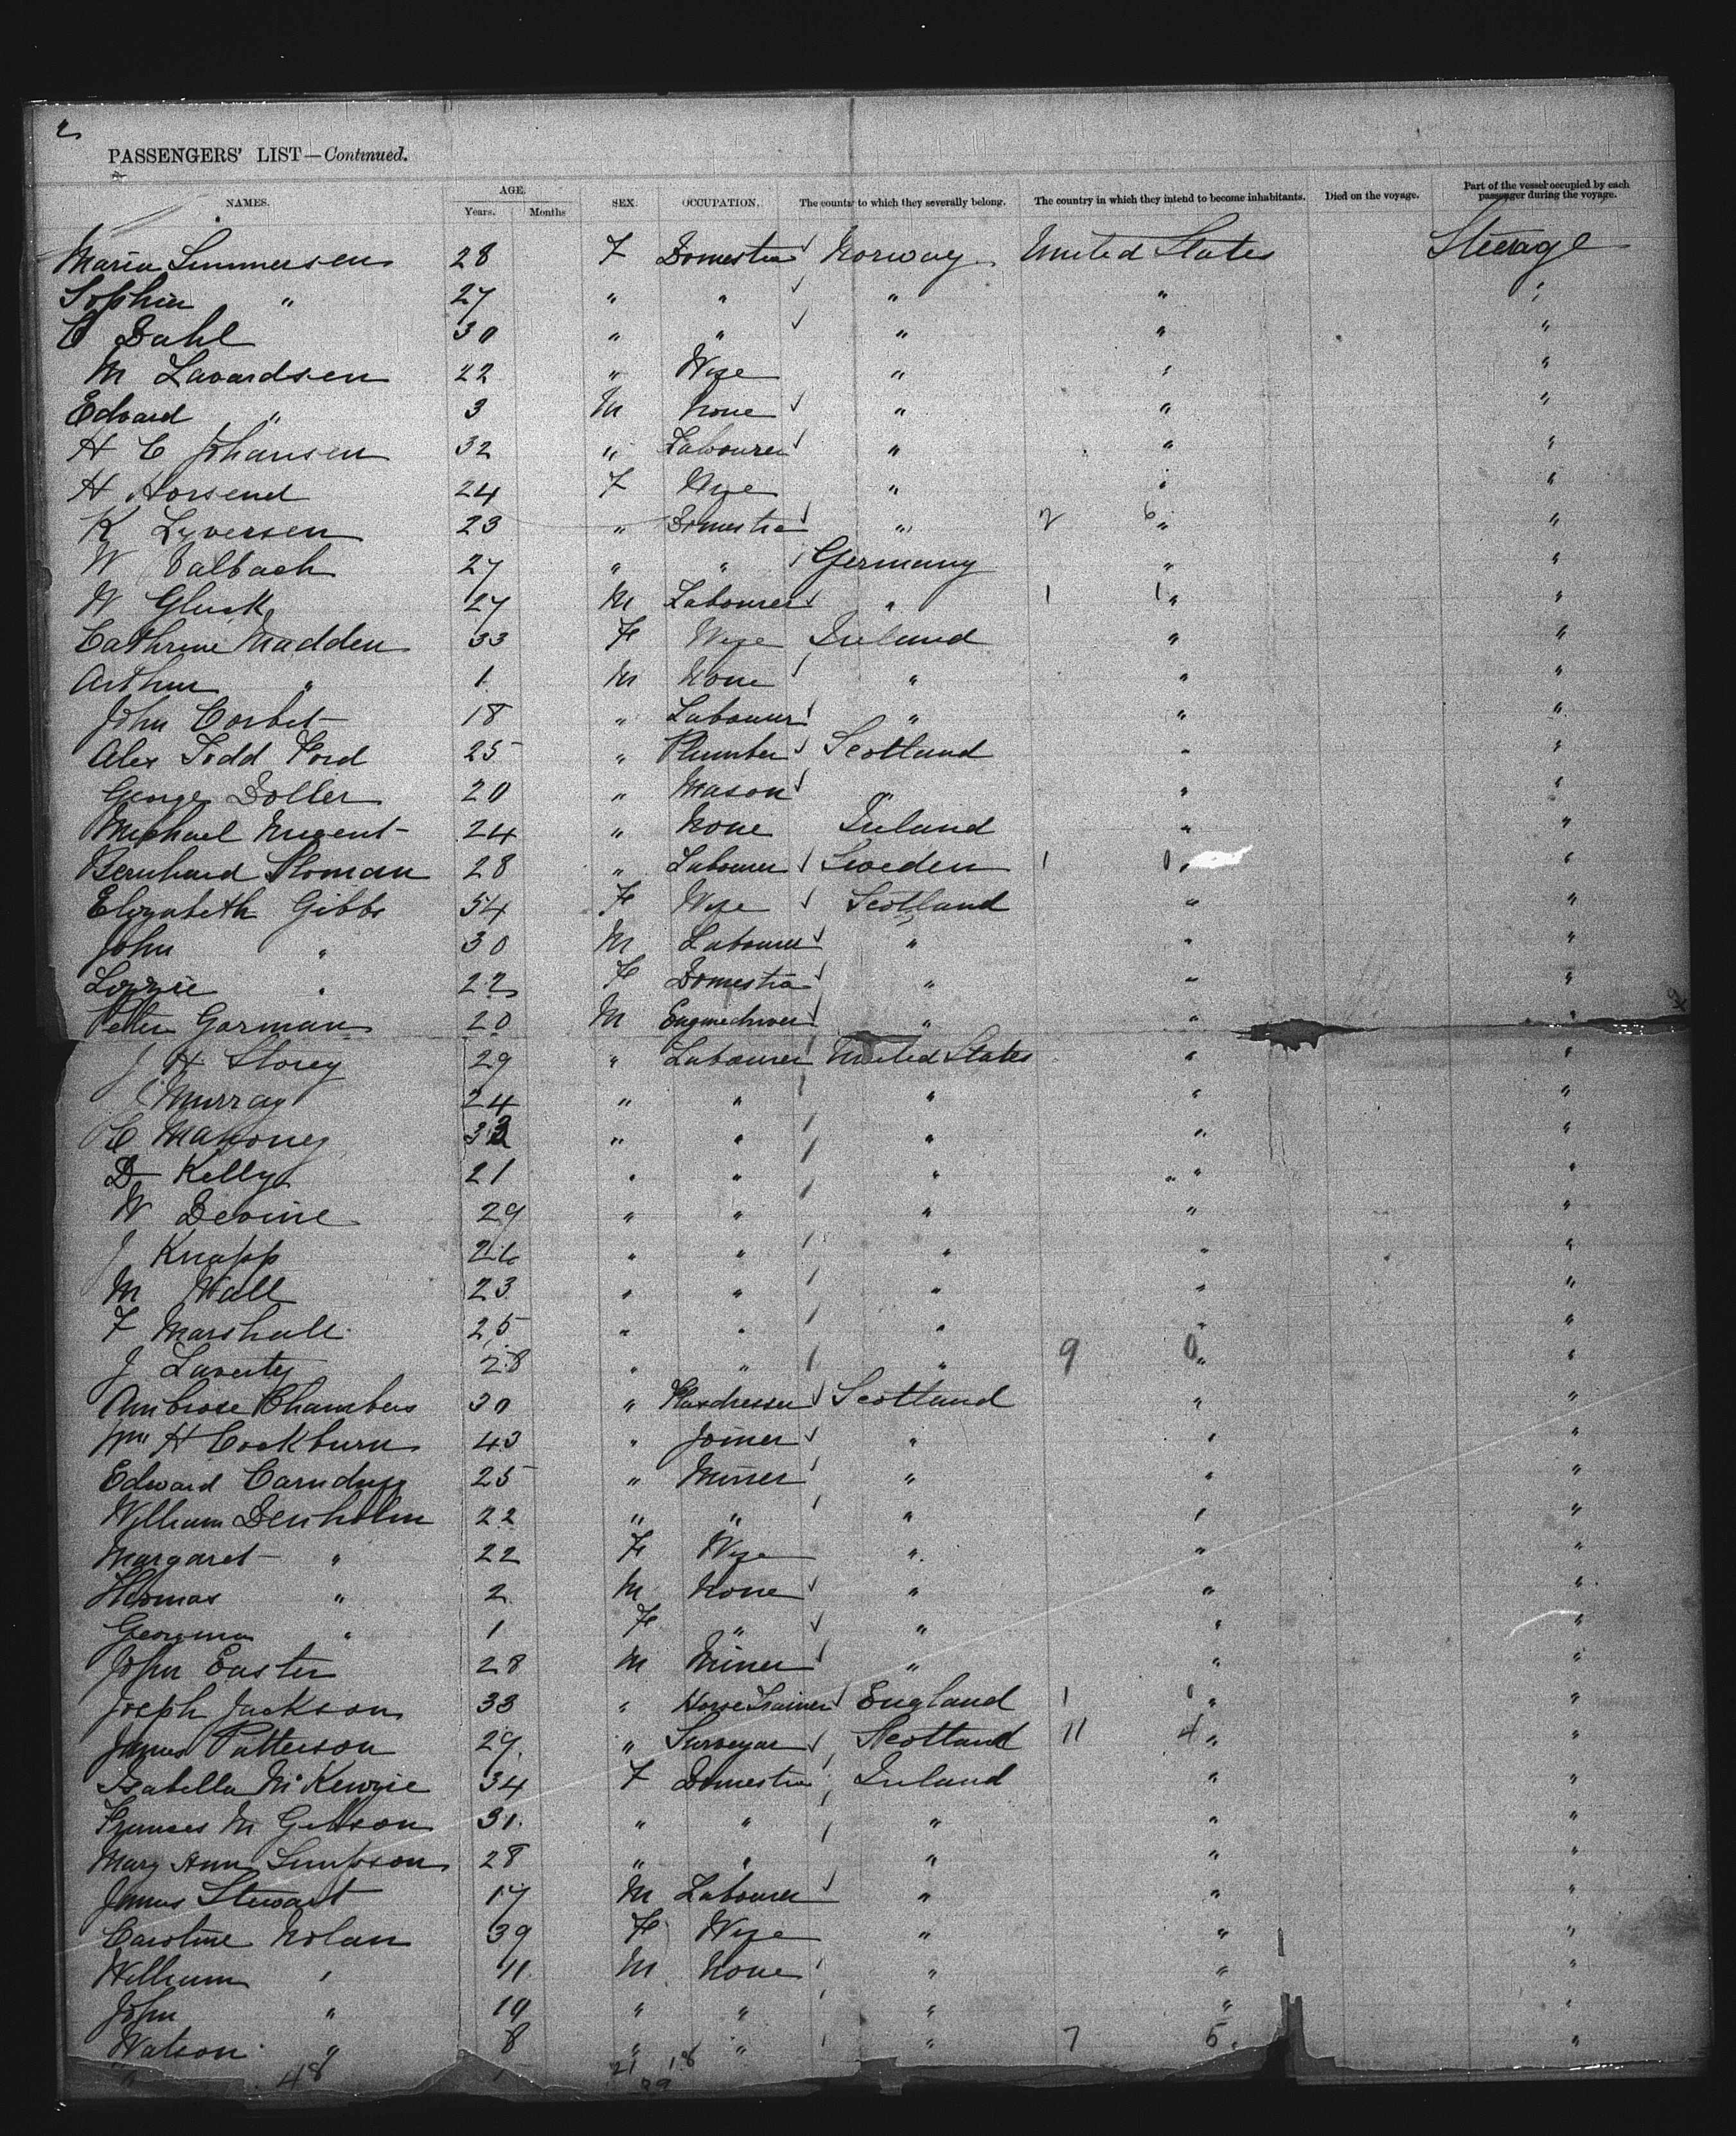 2
PASSENGERS' LIST—Continued.
NAMES. AGE. Years. Months SEX. OCCUPATION. The country to which they severally belong. The country in which they intend to become inhabitants. Died on the voyage. Part of the vessel occupied by each passenger during the voyage.
Maria Simmersen 28 F Domestic Norway United States Steerage
Sophia " 27 " " " " "
C Dahl 30 " " " " "
M Lavardsen 22 " Wife " " "
Edvard " 3 M None " " "
H C Johansen 32 " Labourer " " "
H 24 F Wife " " "
K Lyversen 23 " Domestic " 2 6 " "
W Valbach 27 " " Germany " "
W Gluck 27 M Labourer " 1 1 " "
Cathrine Madden 33 F Wife Ireland " "
Arthur " 1 M None " " "
John Corbet 18 " Labourer " " "
Alex Todd Ford 25 " Plumber Scotland " "
George Doller 20 " Mason " " "
Michael Nugent 24 " None Ireland " "
Bernhard Sloman 28 " Labourer Sweden 1 0 " "
Elizabeth Gibbs 54 F Wife Scotland " "
John " 30 M Labourer " " "
Lizzie " 22 F Domestic " " "
Peter Gorman 20 M Enginedriver " " "
J H Storey 29 " Labourer United States " "
J Murray 24 " " " " "
C Mahoney 33 " " " " "
D Kelly 21 " " " " "
W Devine 29 " " " " "
J Knapp 26 " " " " "
M Wall 23 " " " " "
F Marshall 25 " " " " "
J Laverty 28 " " " 9 0 " "
Ambrose Chambers 30 " Flaxdresser Scotland " "
Wm H Cockburn 43 " Joiner " " "
Edward Carnduff 25 " Miner " " "
William Denholm 22 " " " " "
Margaret " 22 F Wife " " "
Thomas " 2 M None " " "
Georgina " 1 F " " " "
John Easter 28 M Miner " " "
Joseph Jackson 33 " Horse Trainer England 1 0 " "
James Patterson 29 " Surveyor Scotland 11 4 " "
Isabella McKenzie 34 F Domestic Ireland " "
Frances M Gibson 31 " " " " "
Mary Ann Simpson 28 " " " " "
James Stewart 17 M Labourer " " "
Caroline Nolan 39 F Wife " " "
William " 11 M None " " "
John " 10 " " " " "
Watson " 8 " " " 7 5 "
48 21 18